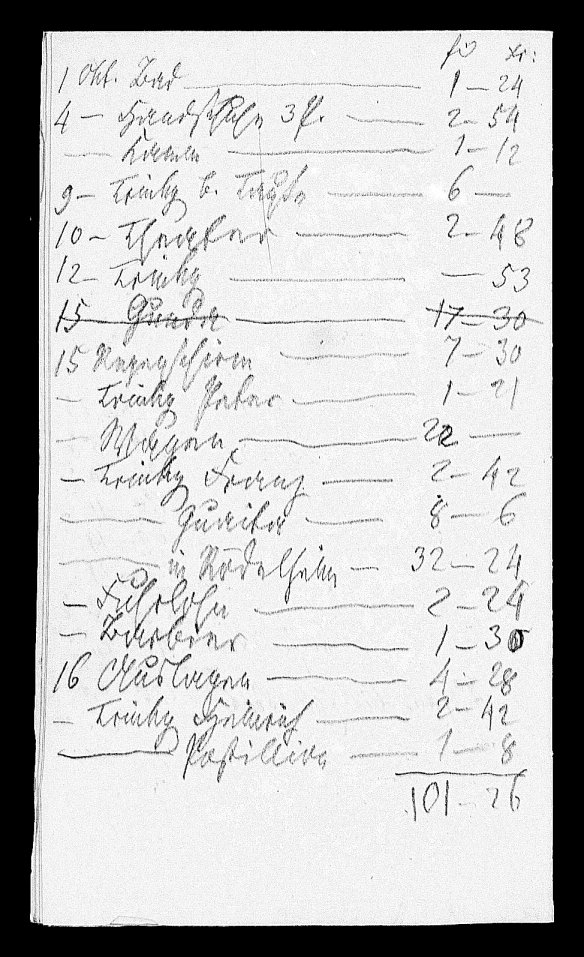 fl xr:
1 Okt. Bad — 1 – 24
4 – Handschuhe 3 P. — 2 – 54
— — 1 – 12
9 – Trinkg b. — 6 —
10 – Theater — 2 – 48
12 – Trinkg — – 53
15 — 17 – 30
15 Regenschirm — 7 – 30
– Trinkg Peter — 1 – 21
– Wagen — 22 —
– Trinkg Franz — 2 – 42
— Guaita — 8 – 6
— in Rödelheim — 32 – 24
– Fuhrlohn — 2 – 24
– Barbier — 1 – 30
16 Auslagen — 4 – 28
– Trinkg Heinrich — 2 – 42
— Postillion — 1 – 8
101 – 26